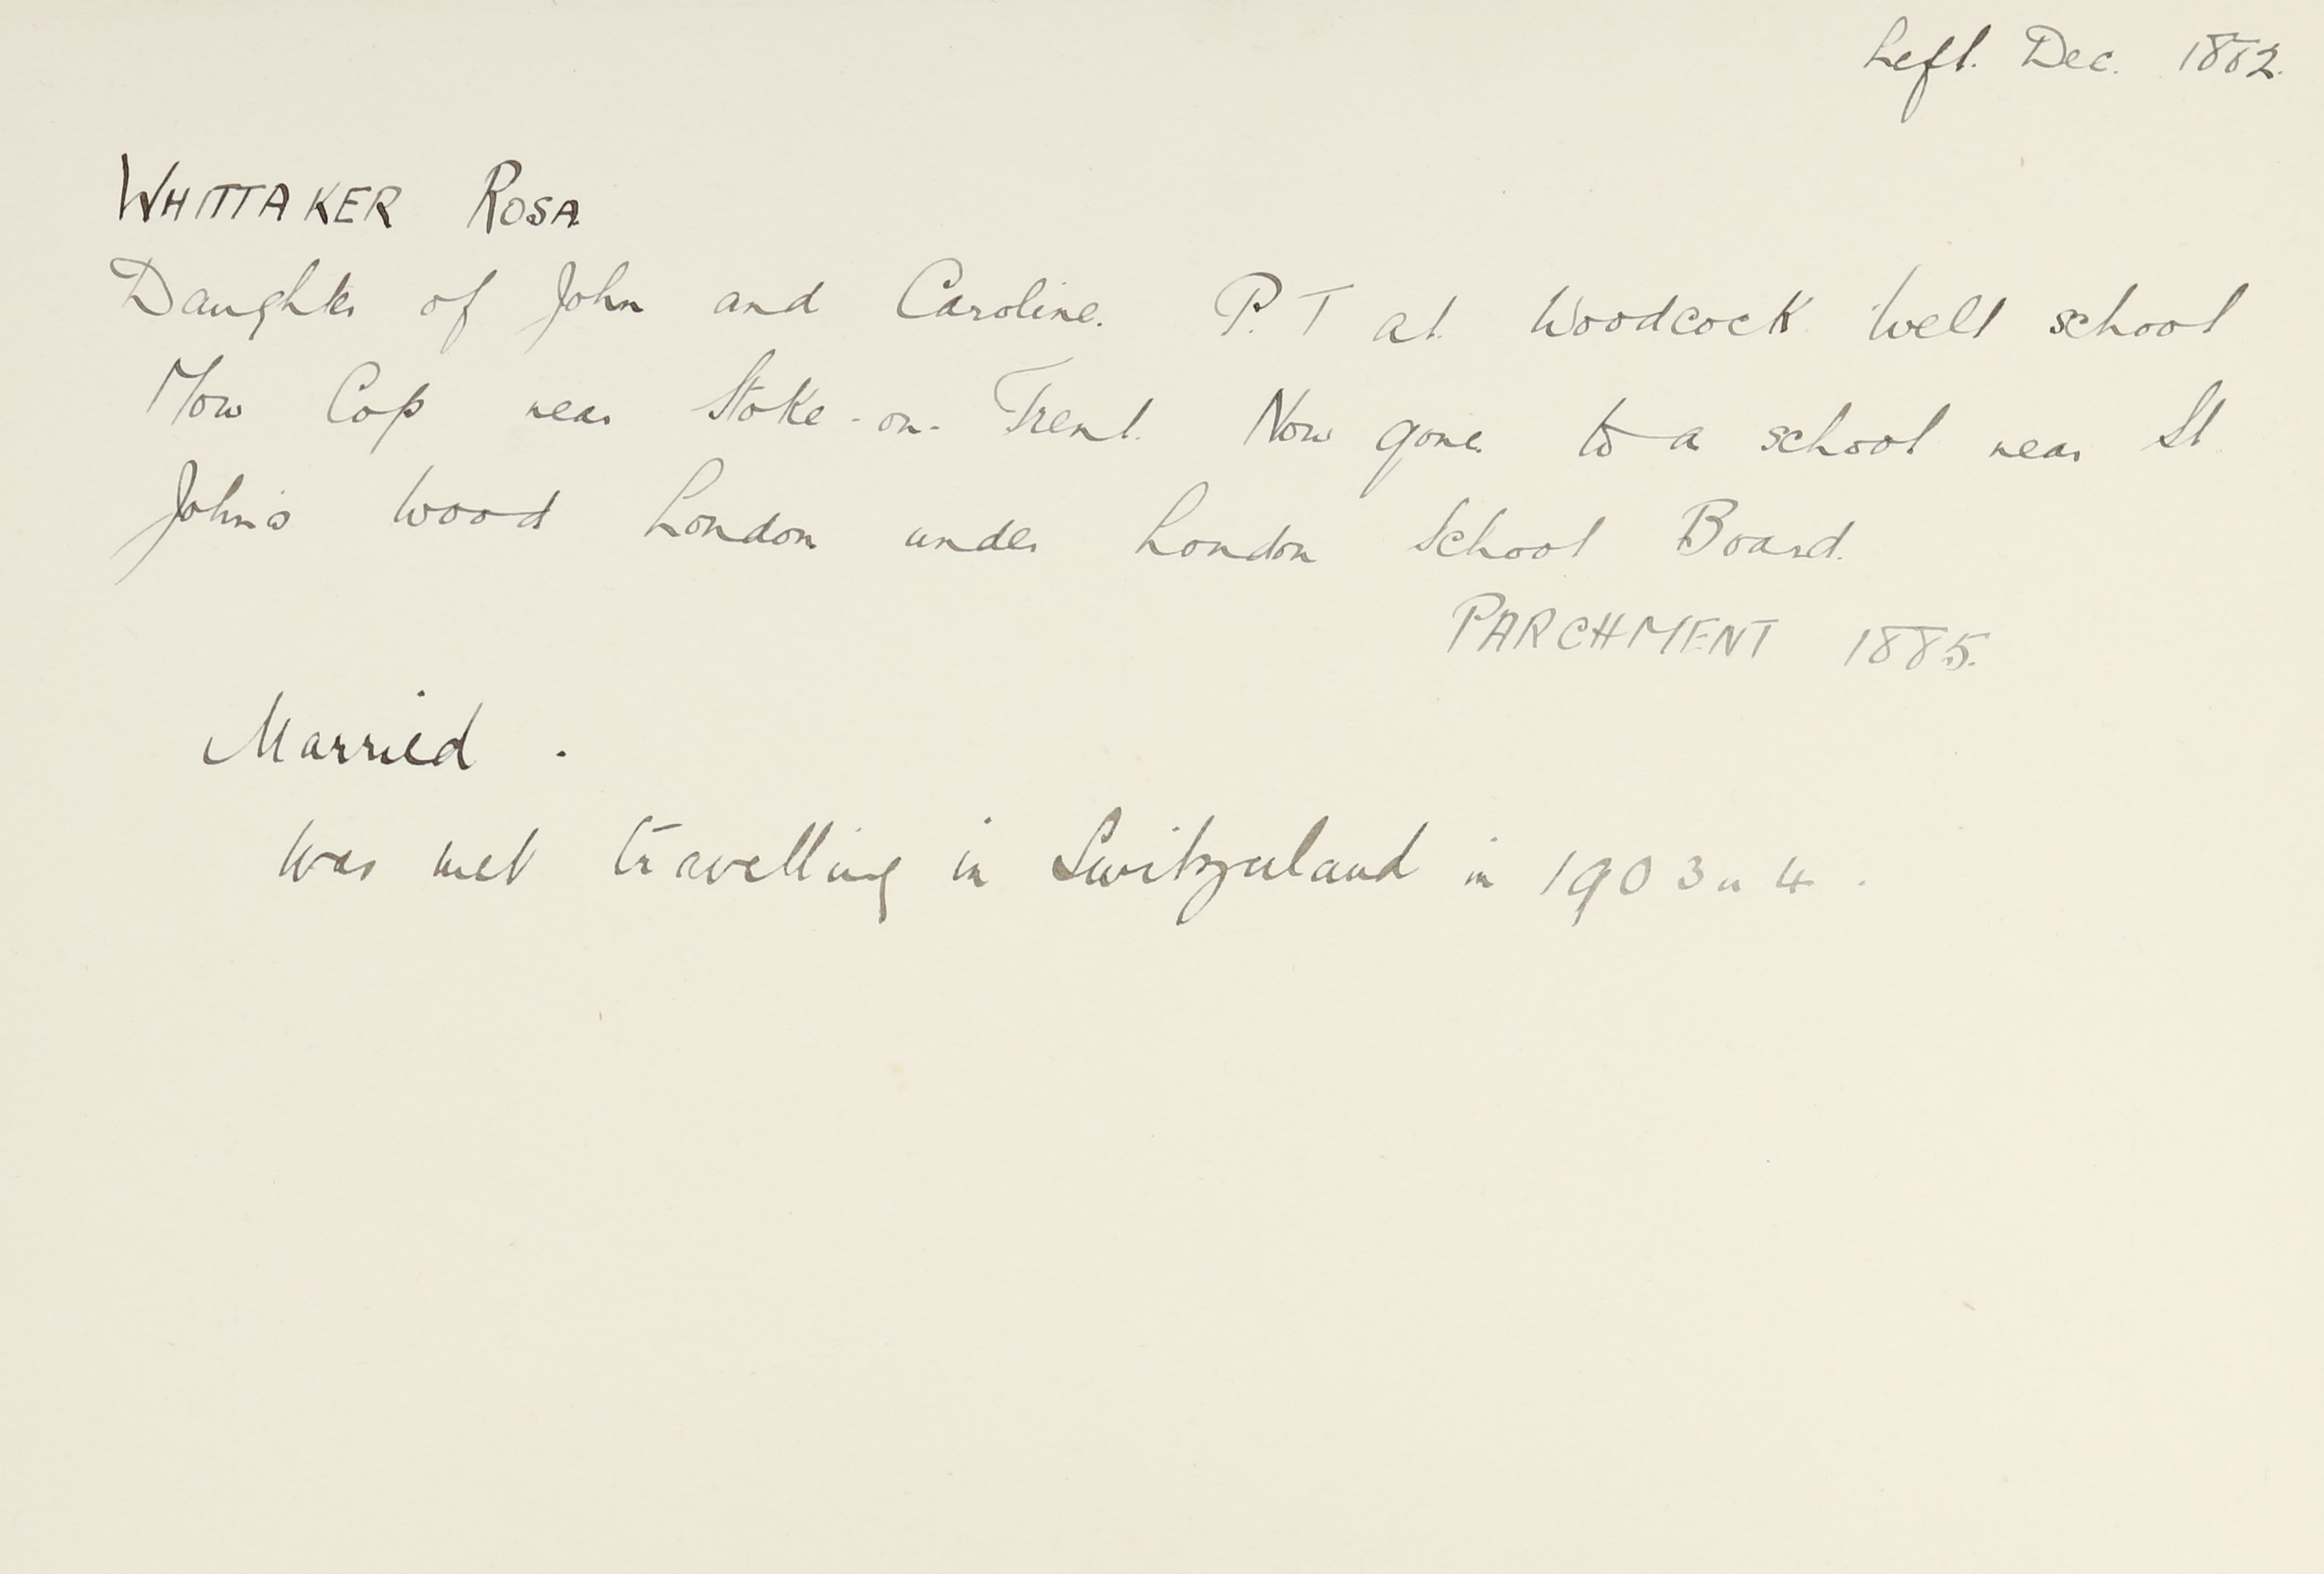 Left. Dec. 1882.
WHITTAKER ROSA
Daughter of John and Caroline. P.T at Woodcock Well school
Mow Cop near Stoke-on-Trent. Now gone to a school near St
John's Wood London under London School Board.
PARCHMENT 1885.
Married.
Was met travelling in Switzerland in 1903 or 4.